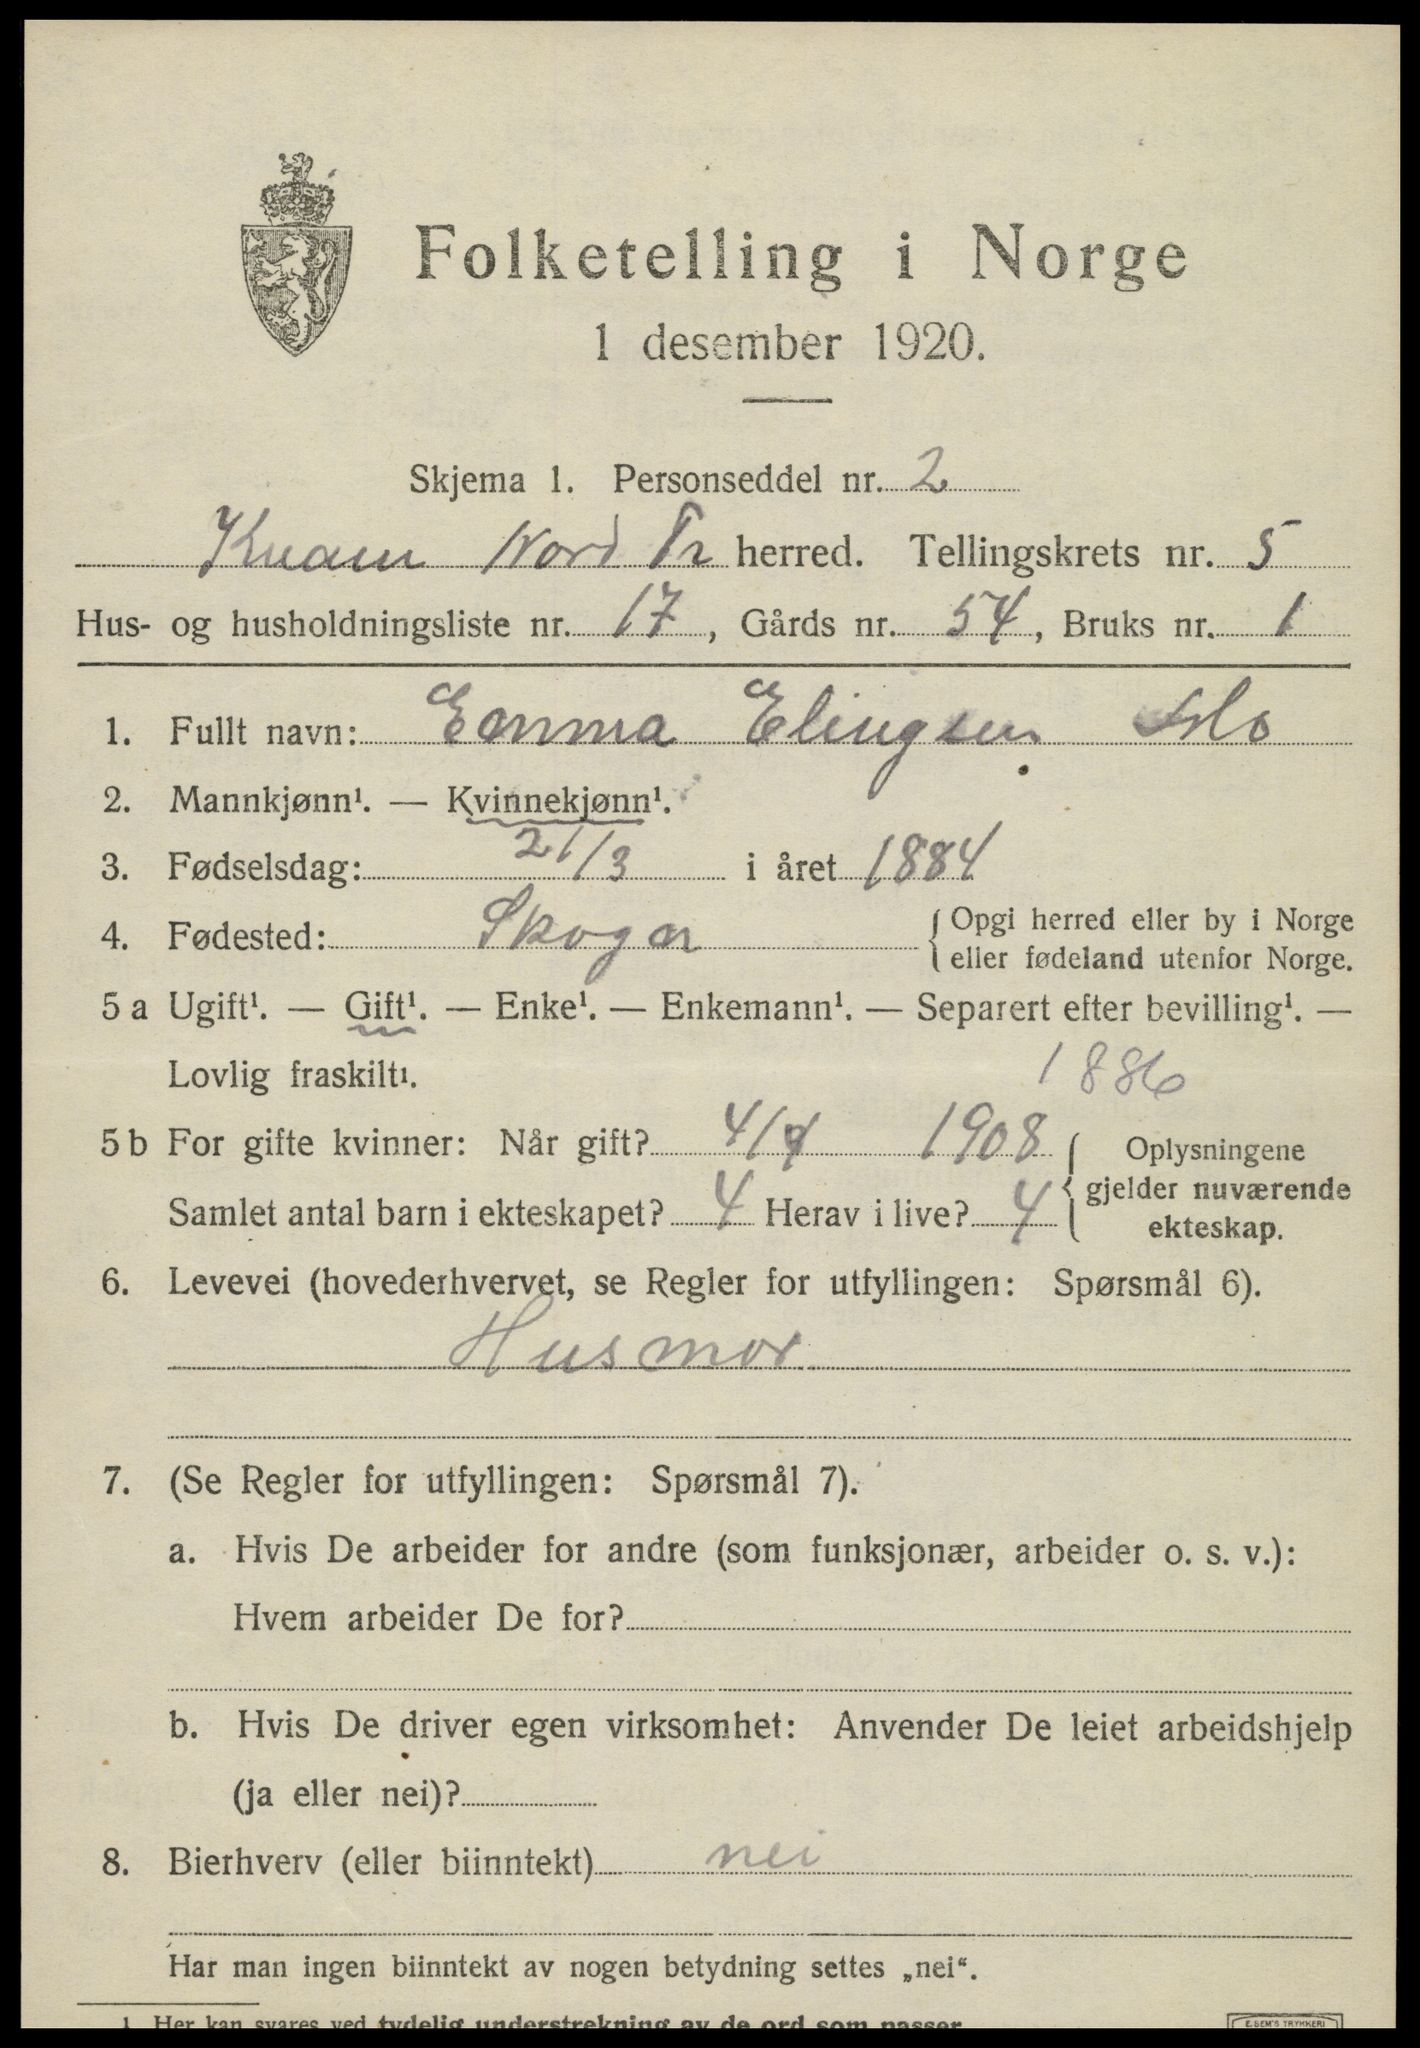 Folketelling i Norge
1 desember 1920.
Skjema 1. Personseddel nr. 2
Kvam Nord Tr herred. Tellingskrets nr. 5
Hus- og husholdningsliste nr. 17, Gårds nr. 54, Bruks nr. 1
1. Fullt navn: Emma Elingsen Mo
2. Mannkjønn¹. — Kvinnekjønn¹.
3. Fødselsdag: 21/3 i året 1884
4. Fødested: Skoger { Opgi herred eller by i Norge
eller fødeland utenfor Norge.
5 a Ugift¹. — Gift¹. — Enke¹. — Enkemann¹. — Separert efter bevilling¹. —
Lovlig fraskilt¹. 1886
5 b For gifte kvinner: Når gift? 4/4 1908 { Oplysningene
gjelder nuværende
ekteskap.
Samlet antal barn i ekteskapet? 4 Herav i live? 4
6. Levevei (hovederhvervet, se Regler for utfyllingen: Spørsmål 6).
Husmor
7. (Se Regler for utfyllingen: Spørsmål 7).
a. Hvis De arbeider for andre (som funksjonær, arbeider o. s. v.):
Hvem arbeider De for?
b. Hvis De driver egen virksomhet: Anvender De leiet arbeidshjelp
(ja eller nei)?
8. Bierhverv (eller biinntekt) nei
Har man ingen biinntekt av nogen betydning settes „nei“.
1 Her kan svares ved tydelig understrekning av de ord som passer
E. SEM'S TRYKKERI